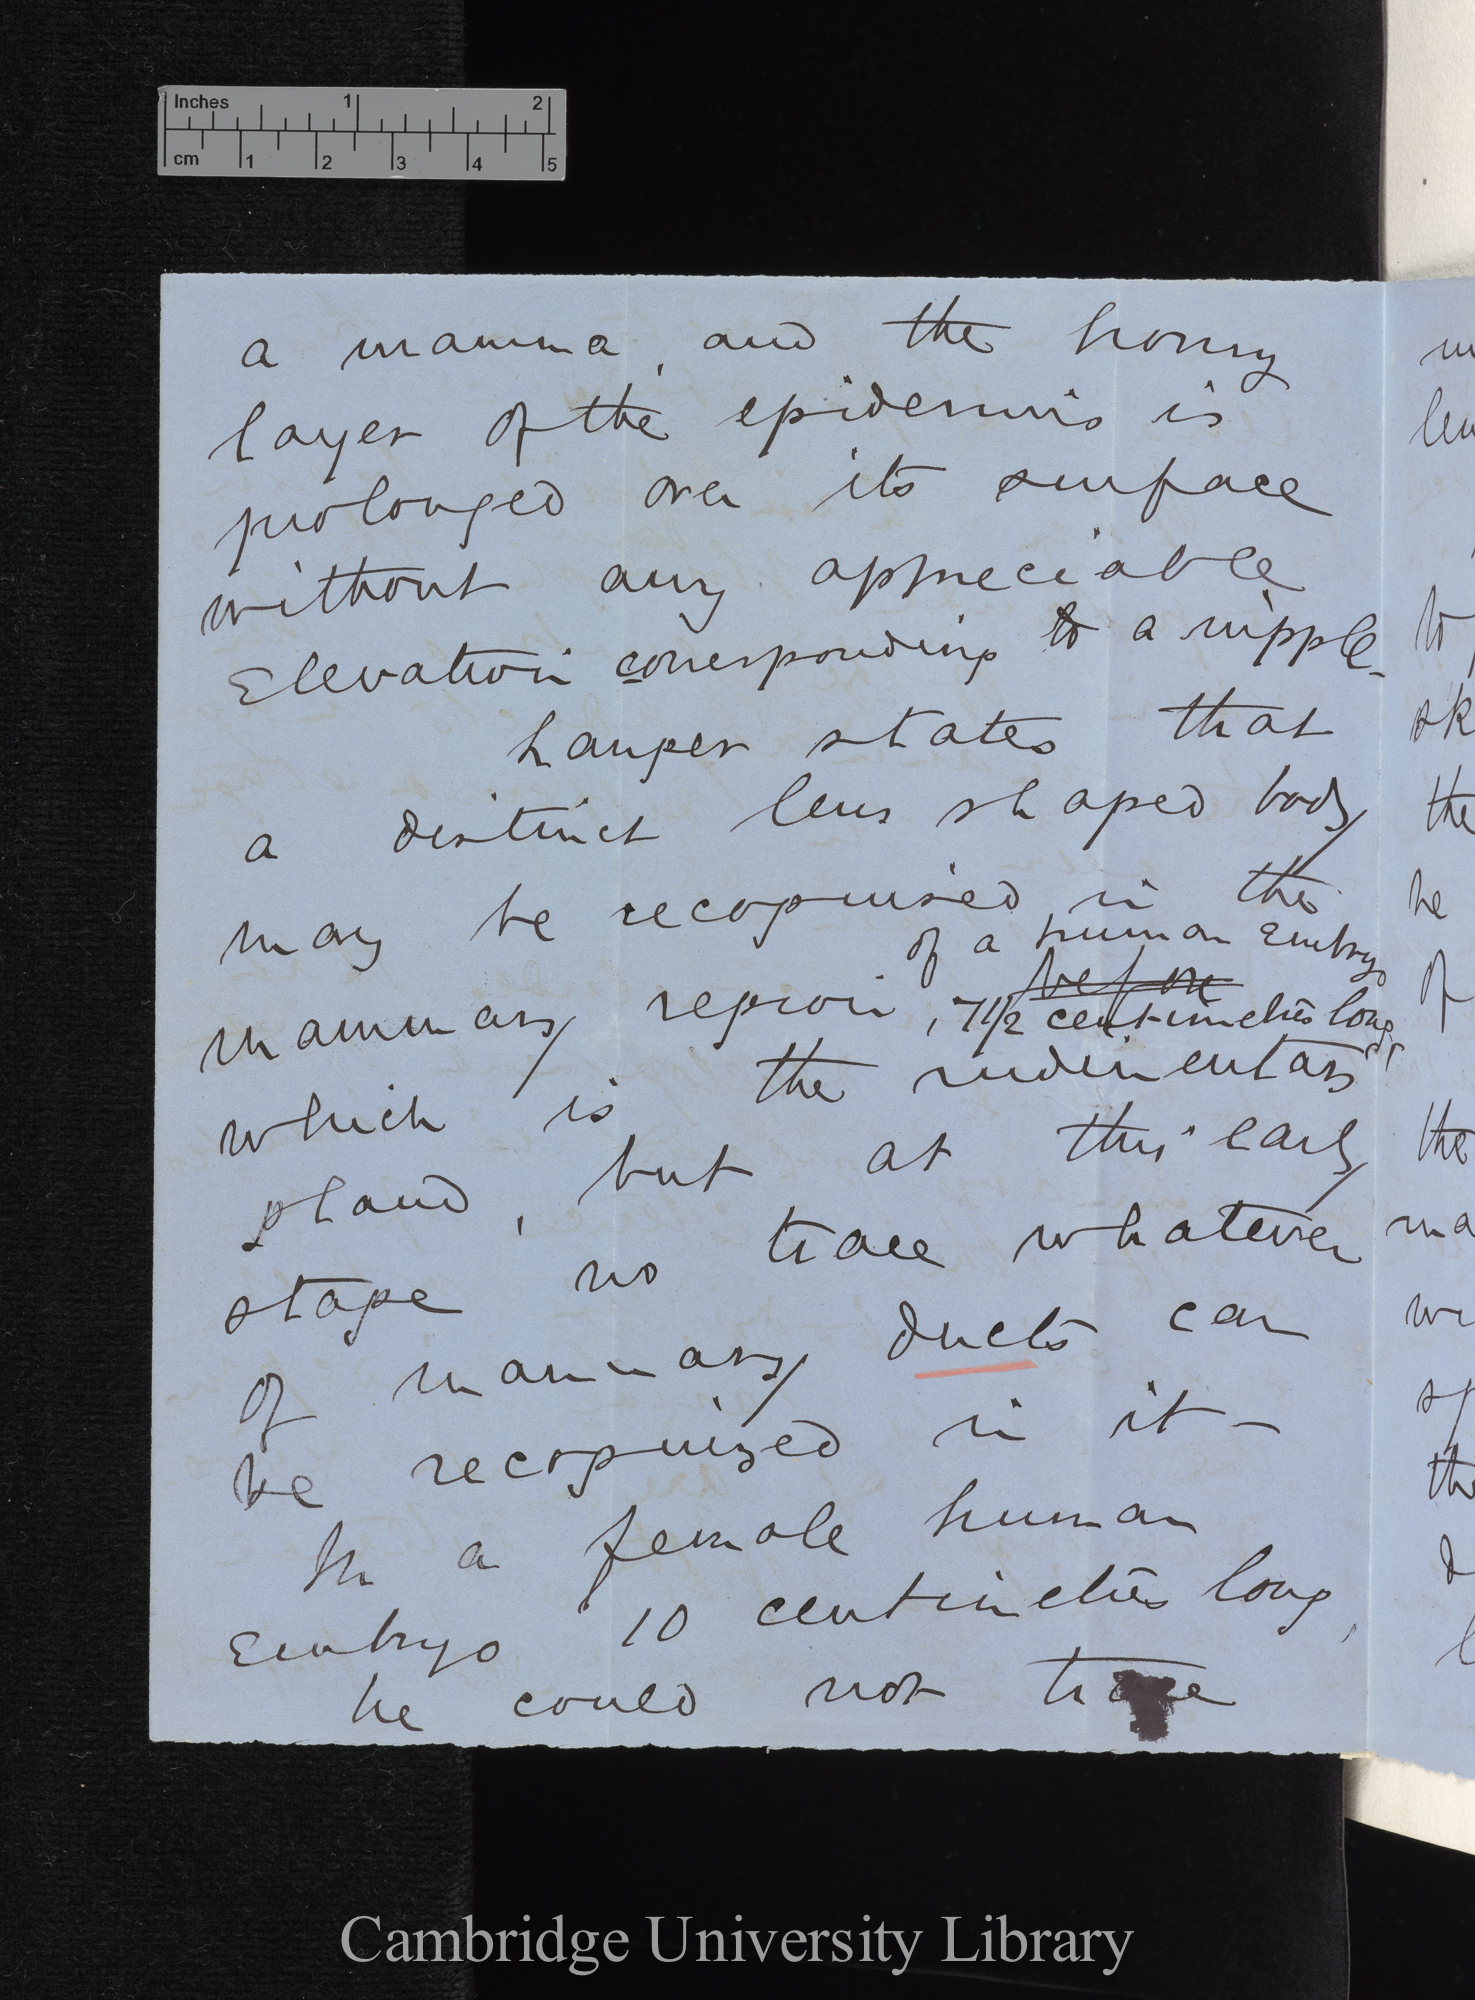 Inches 1 2
cm 1 2 3 4 5
a mamma, and the horny
layer of the epidermis is
prolonged over its surface
without any appreciable
Elevation corresponding to a nipple.
Langer states that
a distinct lens shaped body
may be recognised in the
of a human Embryo
before
mammary region, 7 1/2 centimetres long,
which is the rudimentary
gland, but at this early
stage no trace whatever
of mammary ducts can
be recognized in it –
In a female human
Embryo 10 centimetres long,
he could not trace
to
sk
the
he
of
the
ma
Cambridge University Library